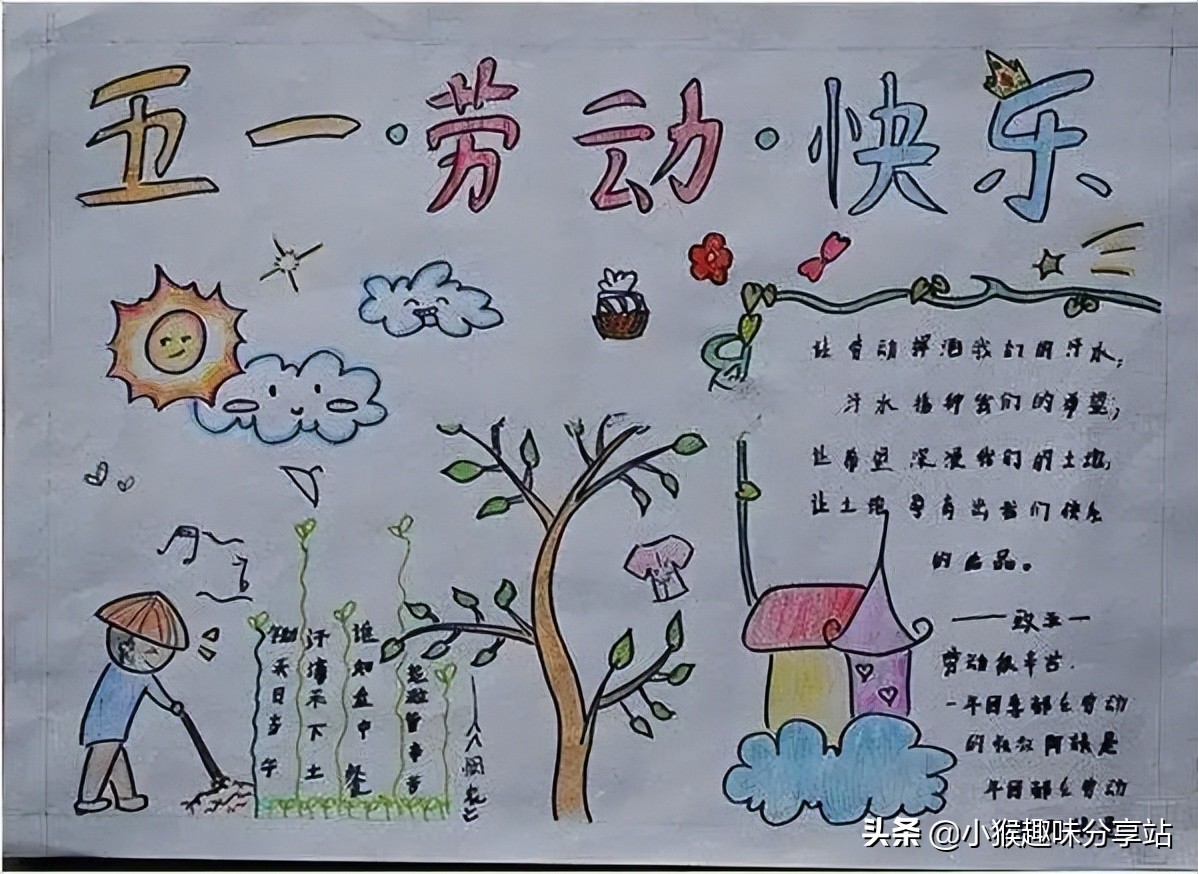 五一·劳动·快乐
让劳动挥洒我们的汗水，
汗水播种我们的希望，
让希望深浸我们的土地，
让土地孕育出我们快乐
的果品。
——致五一
劳动很辛苦.
一年四季都在劳动
的叔叔阿姨是
年四都在劳动
锄禾日当午
汗滴禾下土
谁知盘中餐
粒粒皆辛苦
——《悯农》
头条 @小猴趣味分享站